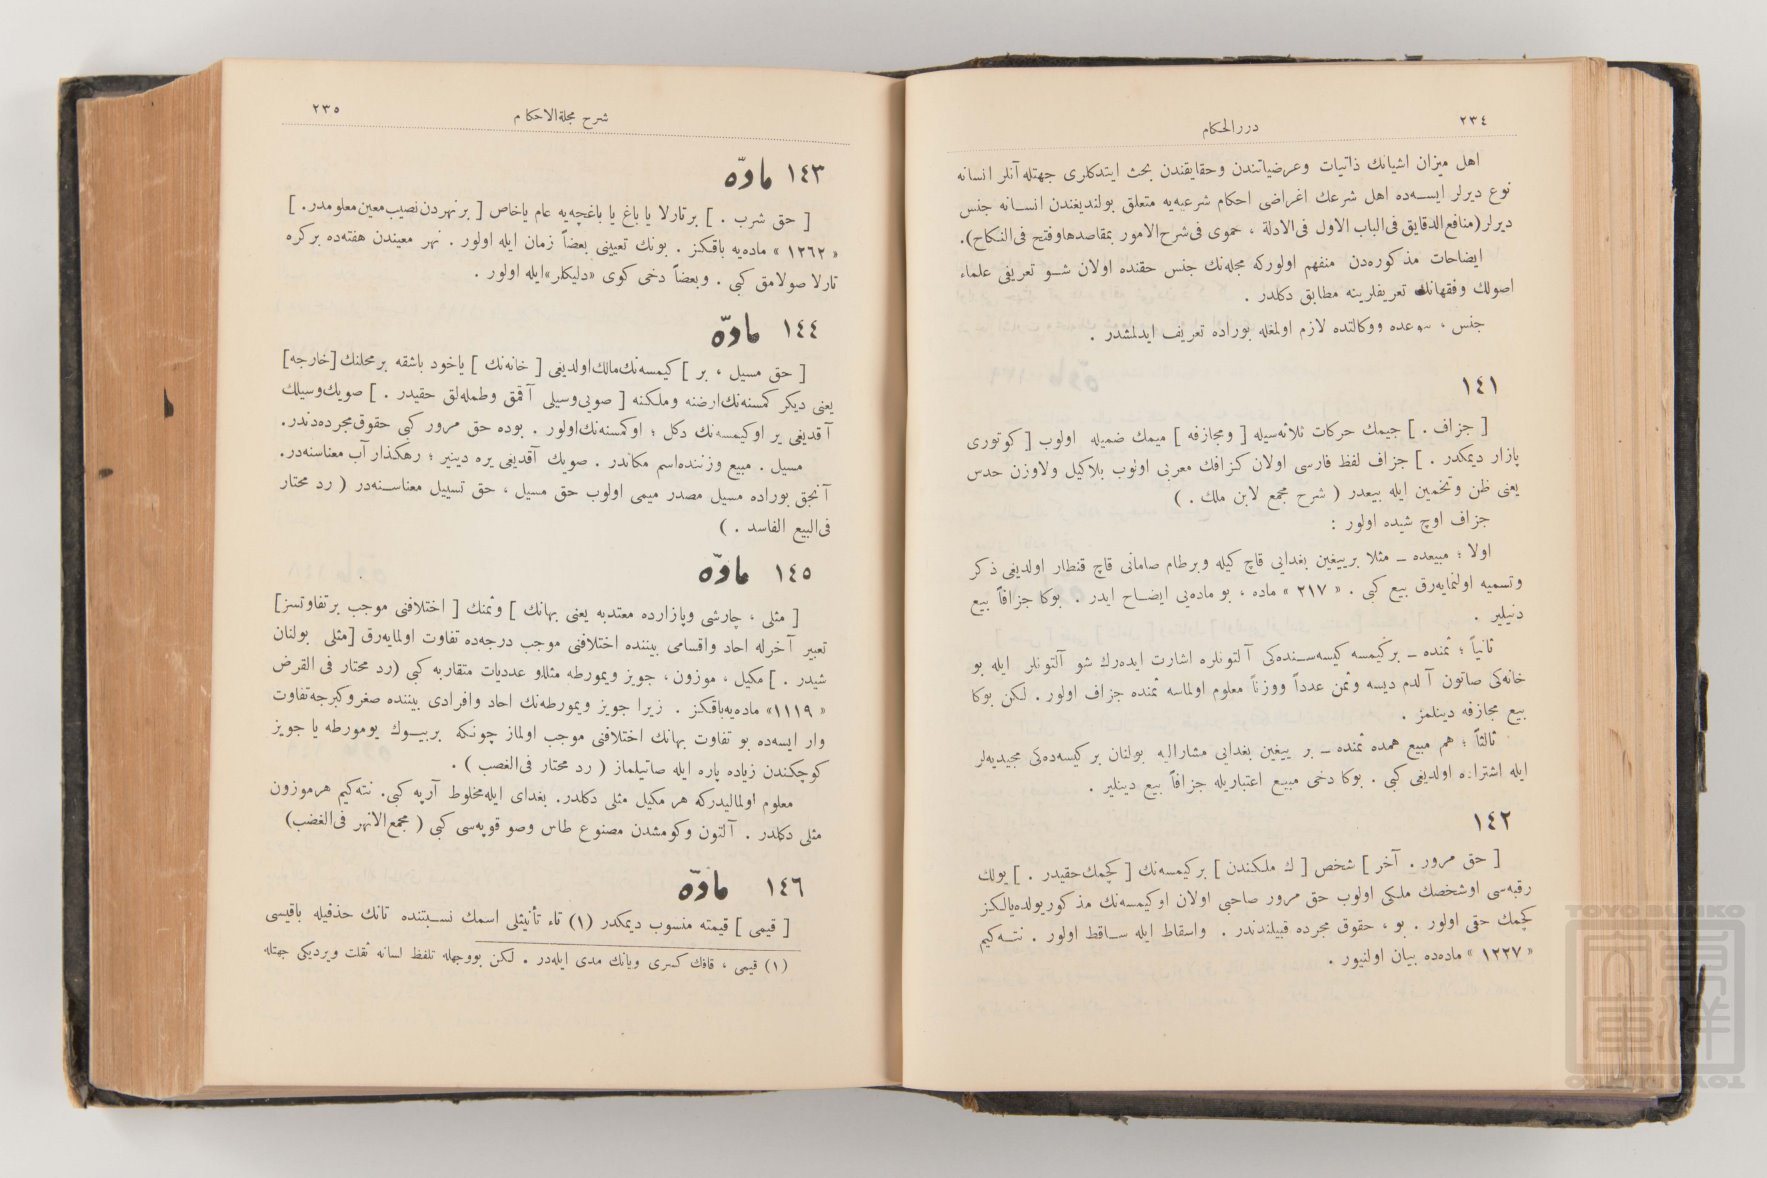 ٢٣٤
دررالحكام
اهل ميزان اشيانك ذاتيات وعرضياتندن وحقايقندن بحث ايتدكلرى جهتله آنلر انسانه
نوع ديرلر ايسه‌ده اهل شرعك اغراضى احكام شرعيه‌يه متعلق بولنديغندن انسانه جنس
ديرلر (منافع الدقايق فى الباب الاول فى الادلة ، حموى فى شرح الامور بمقاصدها وفتح فى النكاح).
ايضاحات مذكوره‌دن منفهم اولوركه مجله‌نك جنس حقنده اولان شو تعريفى علماء
اصولك وفقهانك تعريفلرينه مطابق دكلدر .
جنس ، بيوعده ووكالتده لازم اولمغله بوراده تعريف ايدلمشدر .
١٤١
[ جزاف . ] جيمك حركات ثلاثه‌سيله [ ومجازفه ] ميمك ضميله اولوب [ كوتورى
پازار ديمكدر . ] جزاف لفظ فارسى اولان كزافك معربى اولوب بلاكيل ولاوزن حدس
يعنى ظن وتخمين ايله بيعدر ( شرح مجمع لابن ملك . )
جزاف اوچ شيده اولور :
اولا ؛ مبيعده ــ مثلا بر ييغين بغدايى قاچ كيله وبر طام صامانى قاچ قنطار اولديغى ذكر
وتسميه اولنمايه‌رق بيع كبى . « ٢١٧ » ماده ، بو ماده‌يى ايضاح ايدر . بوكا جزافاً بيع
دينلير .
ثانياً ؛ ثمنده ــ بركيمسه كيسه‌سنده‌كى آلتونلره اشارت ايده‌رك شو آلتونلر ايله بو
خانه‌كى صاتون آلدم ديسه وثمن عدداً ووزناً معلوم اولماسه ثمنده جزاف اولور . لكن بوكا
بيع مجازفه دينلمز .
ثالثاً ؛ هم مبيع همده ثمنده ــ بر ييغين بغدايى مشاراليه بولنان بر كيسه‌ده‌كى مجيديه‌لر
ايله اشتراء اولديغى كبى . بوكا دخى مبيع اعتباريله جزافاً بيع دينلير .
١٤٢
[ حق مرور . آخر ] شخص [ ك ملكندن ] بركيمسه‌نك [ كچمك حقيدر . ] يولك
رقبه‌سى اوشخصك ملكى اولوب حق مرور صاحبى اولان اوكيمسه‌نك مذكور يولده يالكز
كچمك حقى اولور . بو ، حقوق مجرده قبيلندندر . واسقاط ايله ساقط اولور . نته‌كيم
« ١٢٢٧ » ماده‌ده بيان اولنيور .
شرح مجلةالاحكام
٢٣٥
١٤٣ مادّه
[ حق شرب . ] برتارلا يا باغ يا باغچه‌يه عام ياخاص [ برنهردن نصيب معين معلومدر. ]
« ١٢٦٢ » ماده‌يه باقكز . بونك تعيينى بعضاً زمان ايله اولور . نهر معيندن هفته‌ده بركره
تارلا صولامق كبى . وبعضاً دخى كوى «دليكلر» ايله اولور .
١٤٤ مادّه
[ حق مسيل ، بر ] كيمسه‌نك مالك اولديغى [ خانه‌نك ] ياخود باشقه برمحلنك [ خارجه]
يعنى ديكر كمسنه‌نك ارضنه وملكنه [ صويى وسيلى آقمق وطمله‌لق حقيدر . ] صويك وسيلك
آقديغى ير اوكيمسه‌نك دكل ؛ اوكمسنه‌نك اولور . بوده حق مرور كبى حقوق مجرده‌دندر.
مسيل . مبيع وزننده اسم مكاندر . صويك آقديغى يره دينير ؛ رهكذار آب معناسنه‌در.
آنجق بوراده مسيل مصدر ميمى اولوب حق مسيل ، حق تسييل معناسنه‌در ( رد محتار
فى البيع الفاسد . )
١٤٥ مادّه
[ مثلى ، چارشى وپازارده معتدبه يعنى بهانك ] وثمنك [ اختلافنى موجب برتفاوتسز]
تعبير آخرله احاد واقسامى بيننده اختلافنى موجب درجه‌ده تفاوت اولمايه‌رق [ مثلى بولنان
شيدر . ] مكيل ، موزون ، جويز ويمورطه مثللو عدديات متقاربه كبى (رد محتار فى القرض
« ١١١٩» ماده‌يه باقكز . زيرا جويز ويمورطه‌نك احاد وافرادى بيننده صغروكبرجه تفاوت
وار ايسه‌ده بو تفاوت بهانك اختلافنى موجب اولماز چونكه بربيوك يومورطه يا جويز
كوچكندن زياده پاره ايله صاتيلماز ( رد محتار فى الغصب ) .
معلوم اولماليدركه هر مكيل مثلى دكلدر. بغداى ايله مخلوط آرپه كبى. نته‌كيم هرموزون
مثلى دكلدر . آلتون وكومشدن مصنوع طاس وصو قوپه‌سى كبى ( مجمع الانهر فى الغضب)
١٤٦ مادّه
[ قيمى ] قيمته منسوب ديمكدر (١) تاء تأنيثلى اسمك نسبتنده تانك حذفيله باقيسى
(١) قيمى ، قافك كسرى ويانك مدى ايله‌در . لكن بووجهله تلفظ لسانه ثقلت ويرديكى جهتله
TOYO BUNKO
東洋文庫
TOYO BUNKO